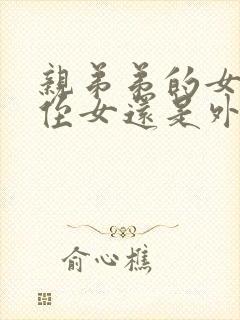 親弟弟的女
侄女還是外
俞心樵